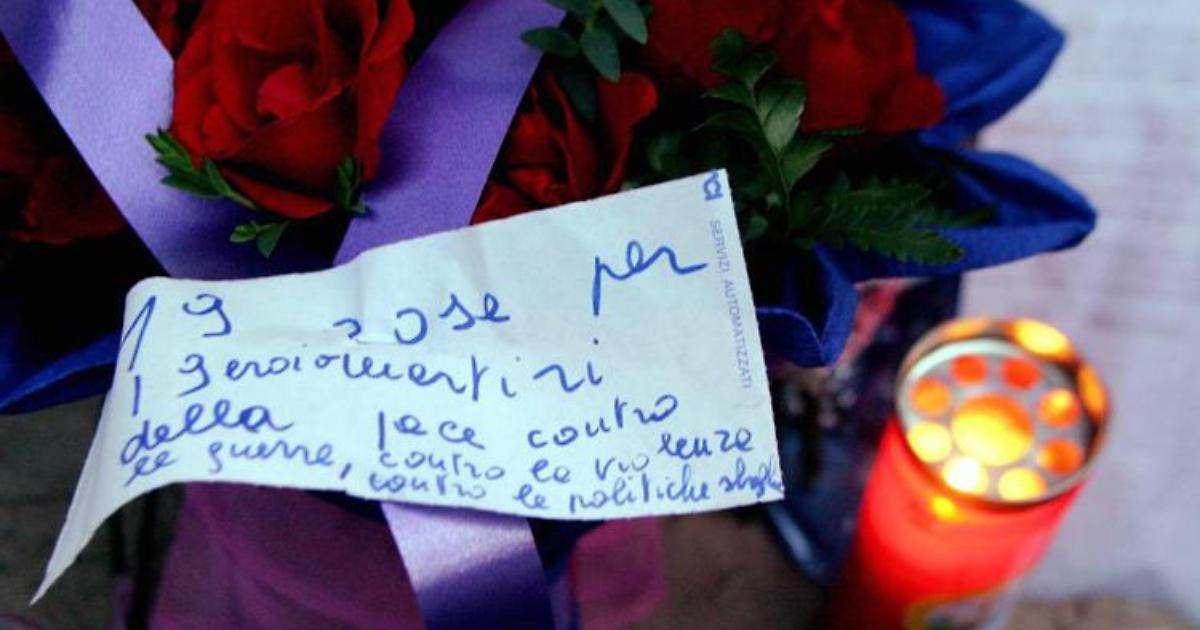 19 rose per
i 19 eroi martiri
della pace contro
le guerre, contro la violenza
contro le politiche sbagli
SERVIZI AUTOMATIZZATI